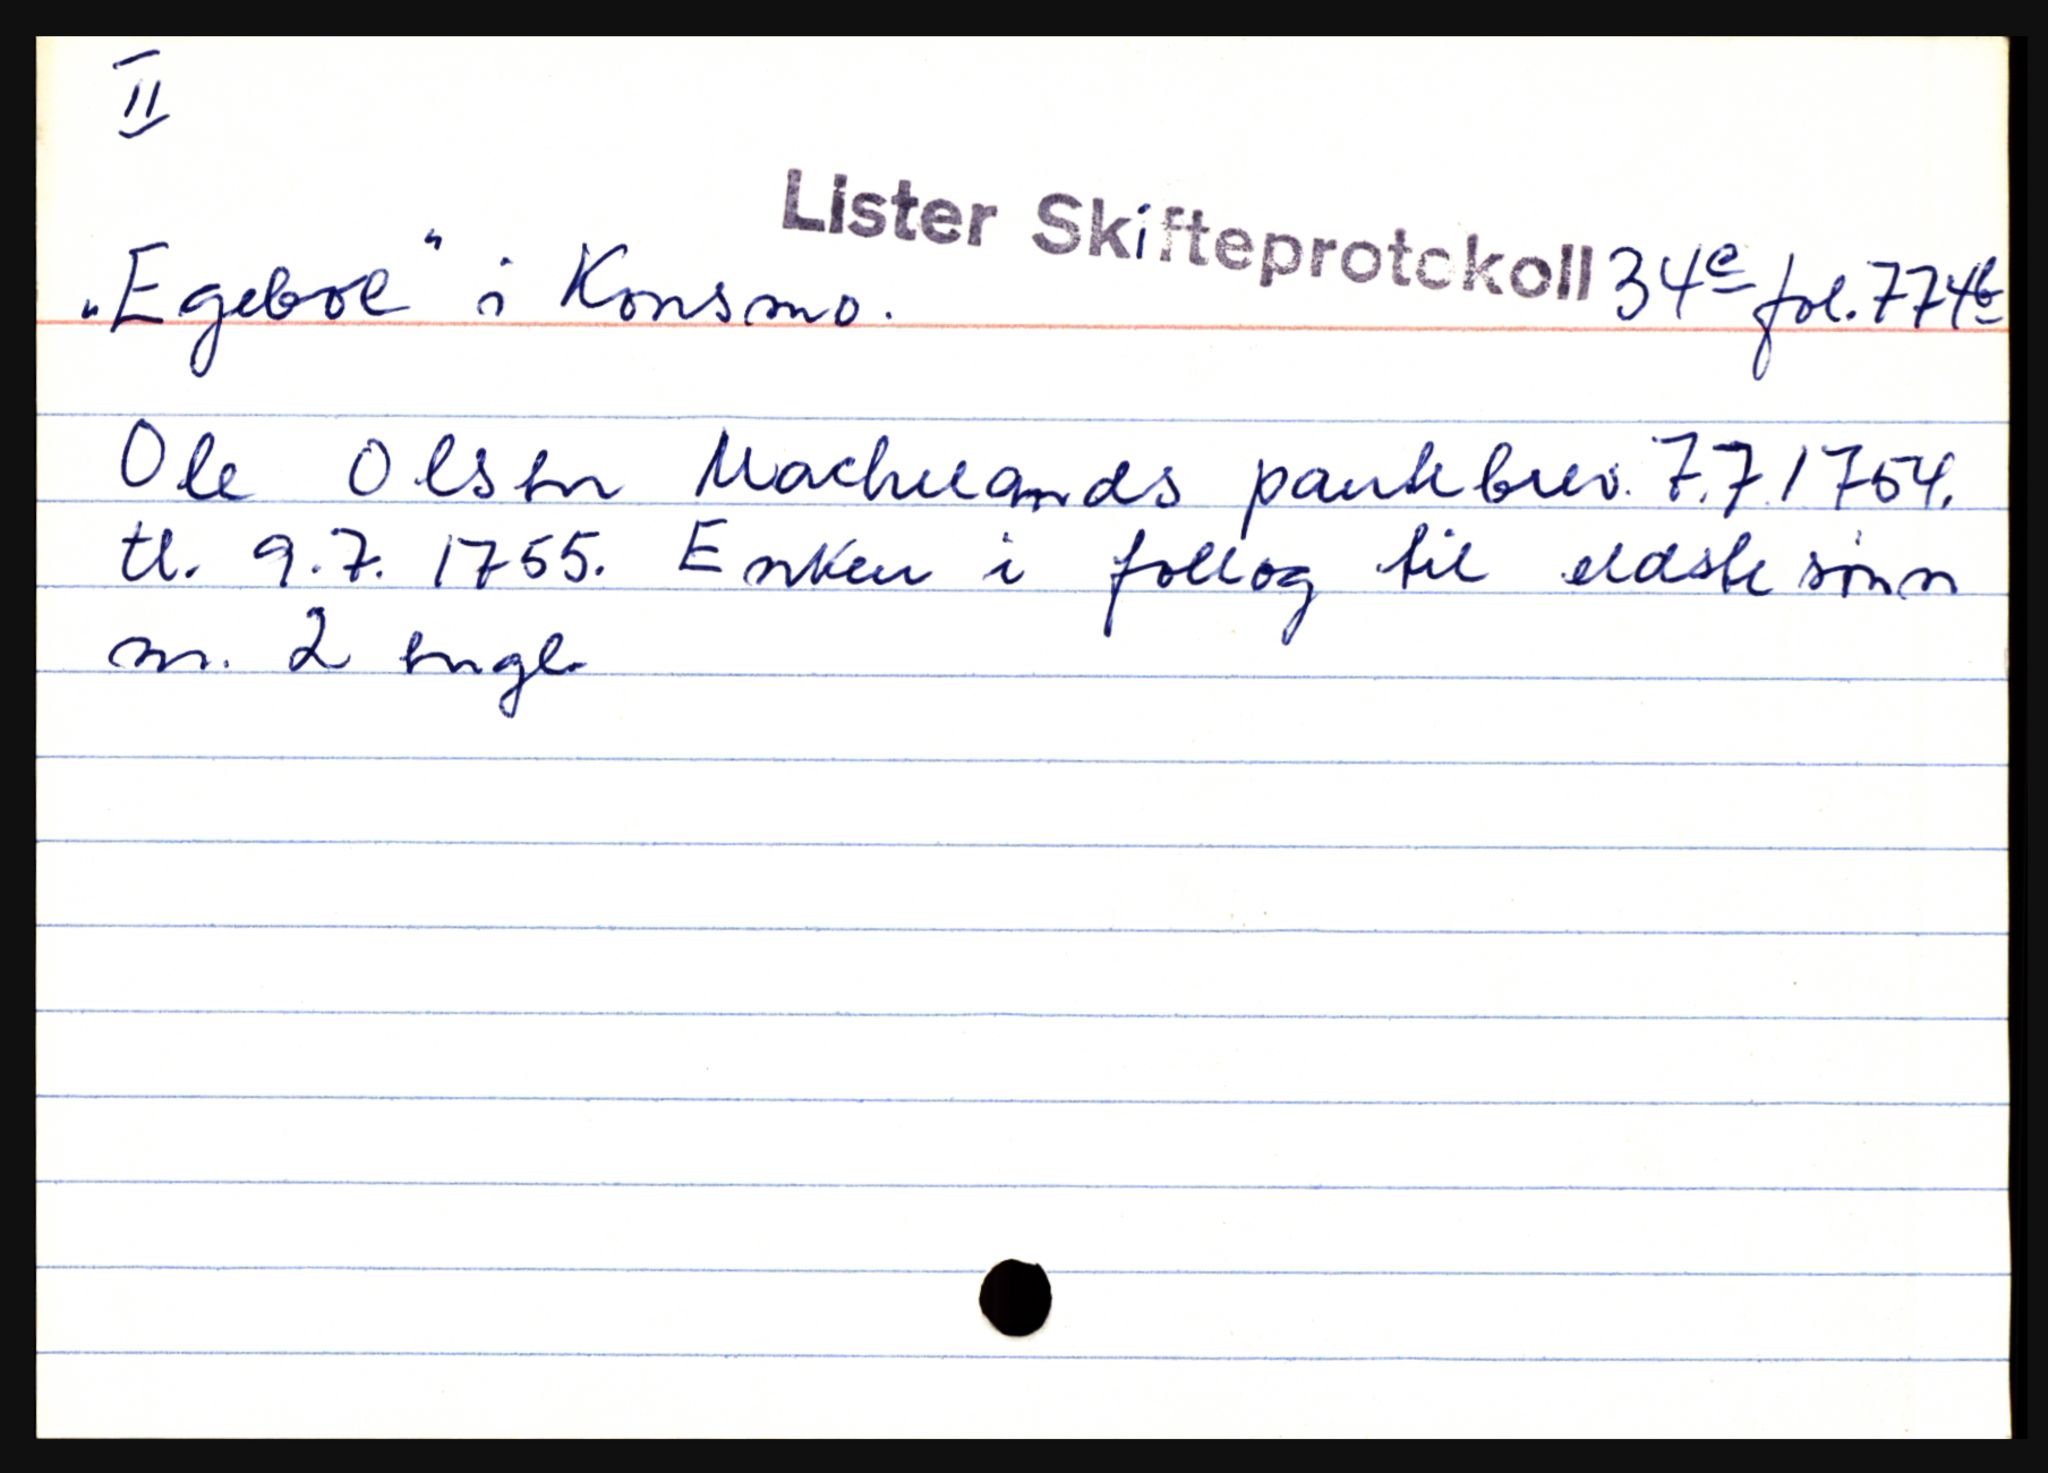 II
Lister Skifteprotokoll 34e fol. 774b
„Egeboe" i Konsmo.
Ole Olsen pantebrev. 7.7.1754.
tl. 9.7. 1755. Enken i follog til eldste sønn
m. 2 engl.